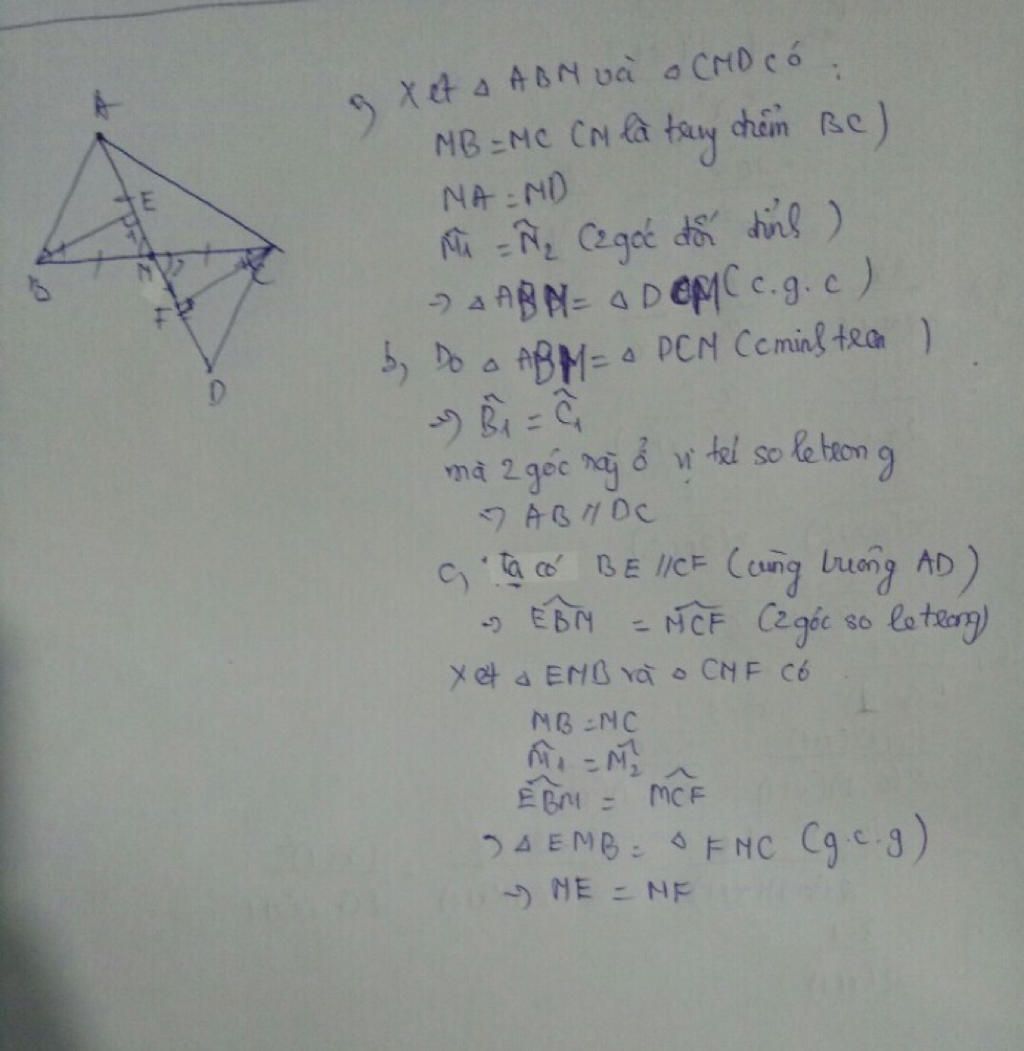 A
E
B
M
C
F
D
a, Xét △ ABM và △ CMD có :
MB = MC (M là trung điểm BC)
MA = MD
M̂1 = M̂2 (2 góc đối đỉnh)
→ △ ABM = △ DCM (c.g.c)
b, Do △ ABM = △ DCM (cminh trên)
→ B̂1 = Ĉ1
mà 2 góc này ở vị trí so le trong
→ AB // DC
c, Ta có BE // CF (cùng vuông AD)
→ EBM = MCF (2 góc so le trong)
Xét △ EMB và △ CMF có
MB = MC
M̂1 = M̂2
EBM = MCF
→ △ EMB = △ FMC (g.c.g)
→ ME = MF